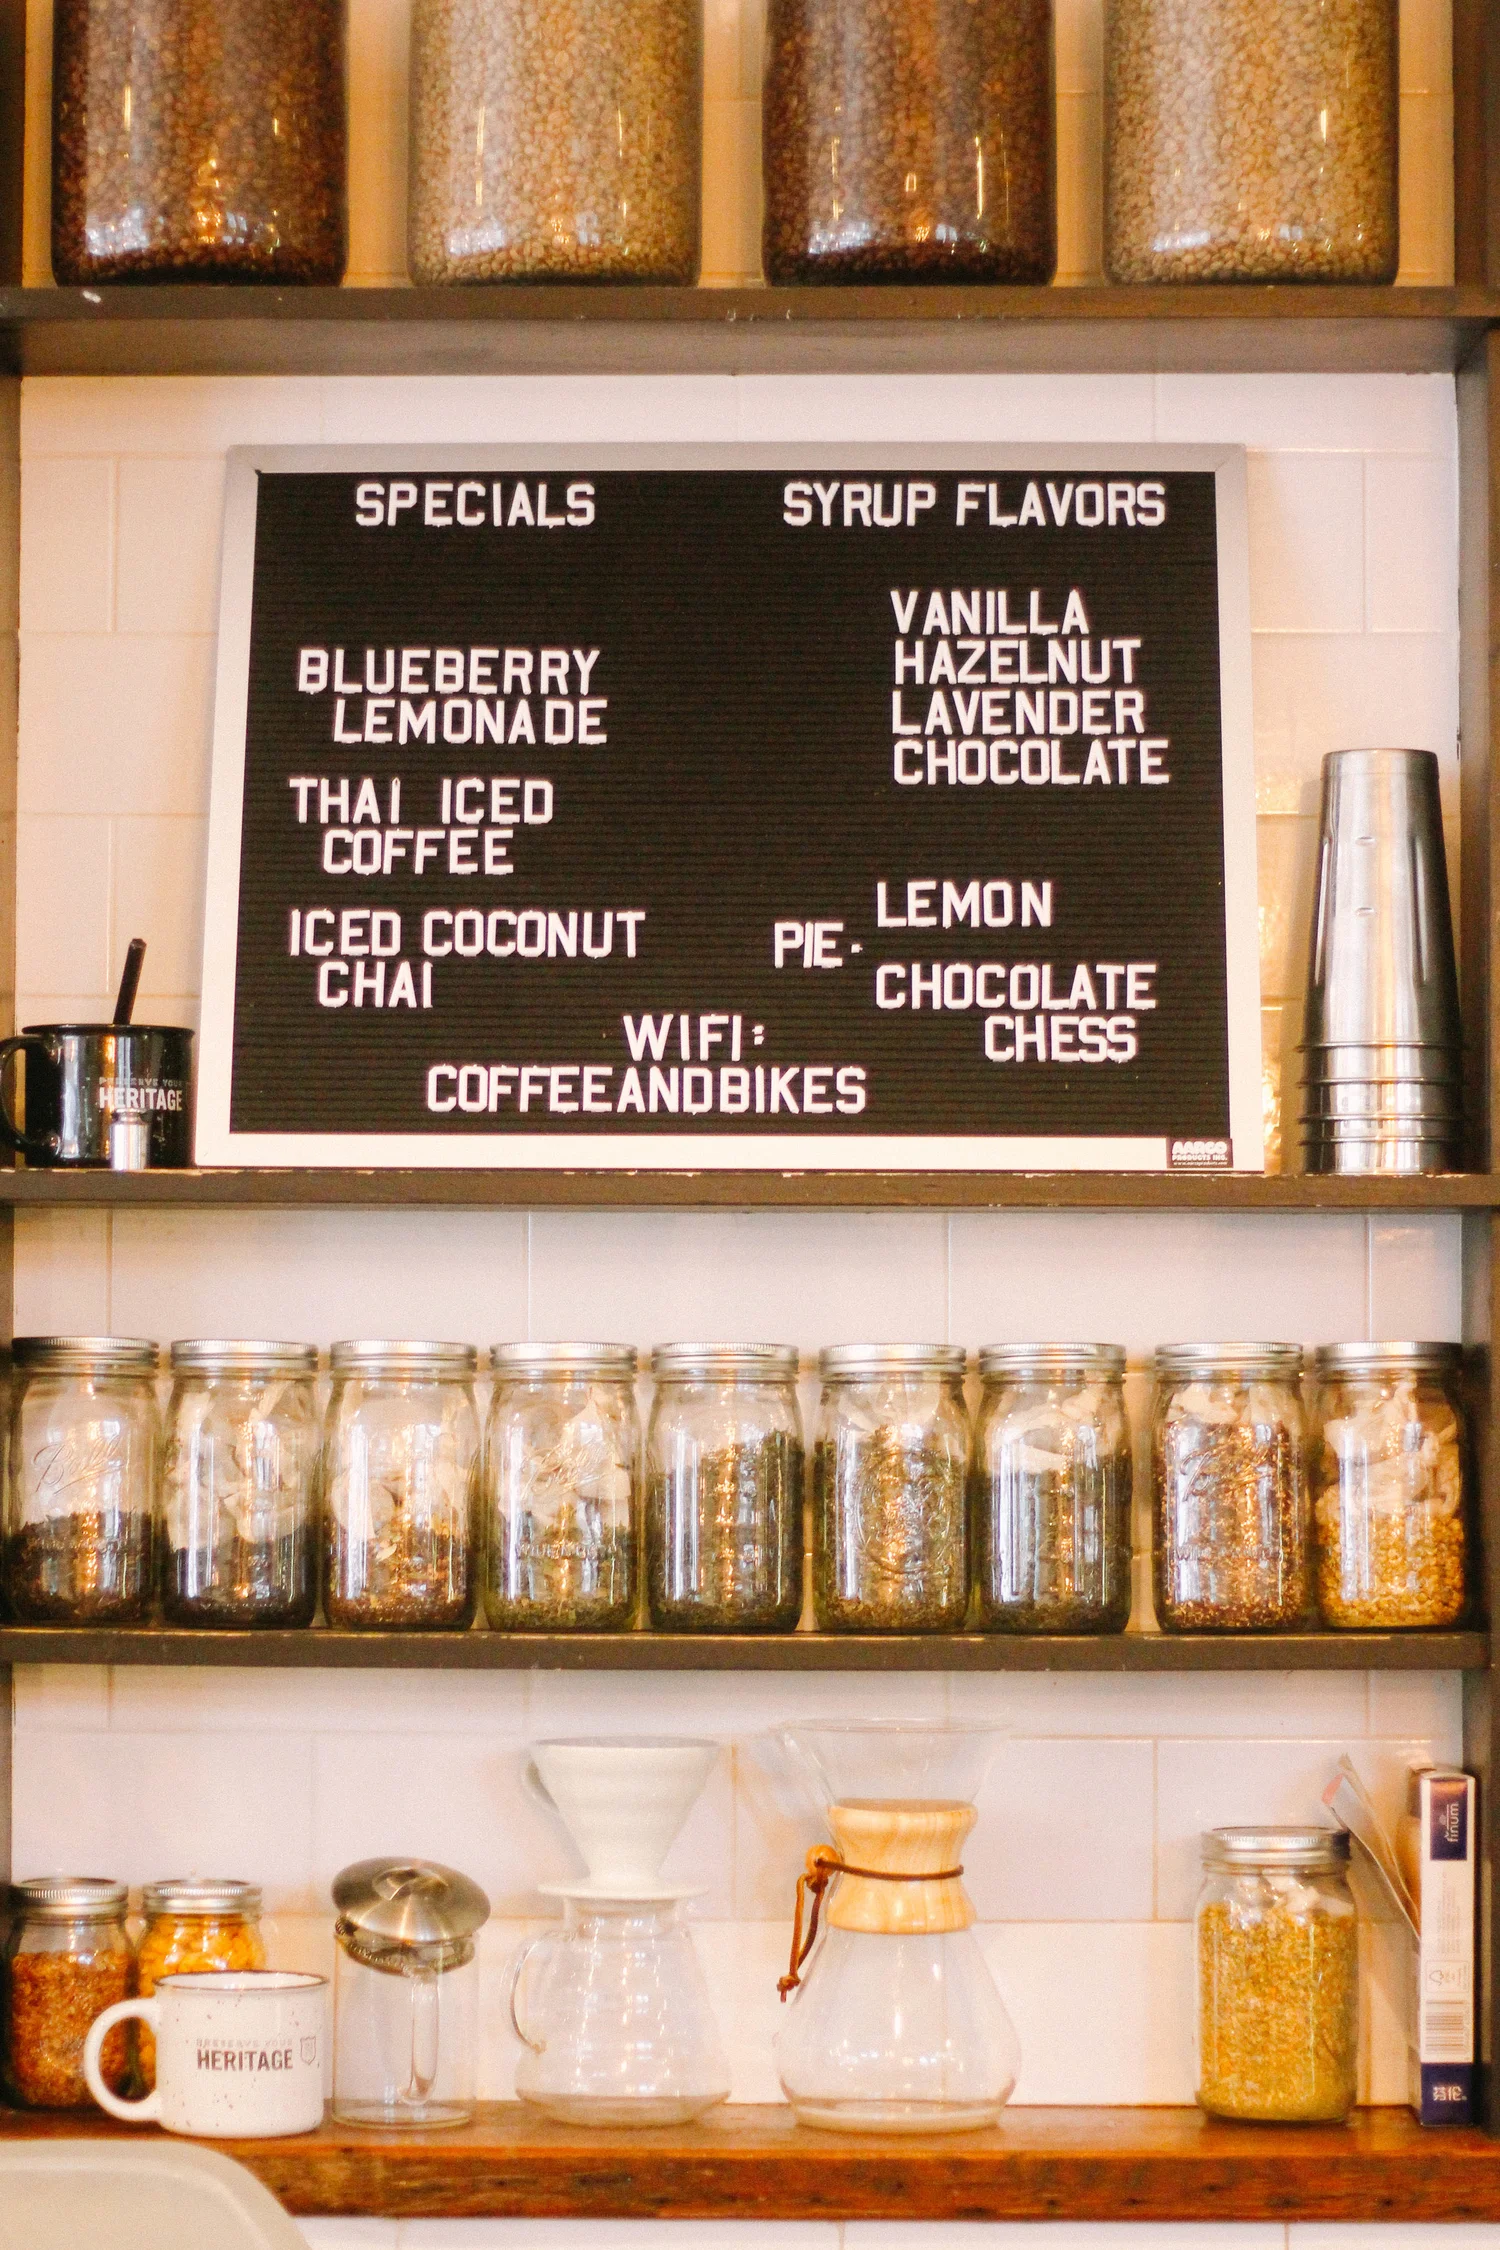 SPECIALS
BLUEBERRY
LEMONADE
THAI ICED
COFFEE
ICED COCONUT
CHAI
SYRUP FLAVORS
VANILLA
HAZELNUT
LAVENDER
CHOCOLATE
PIE·
LEMON
CHOCOLATE
CHESS
WIFI:
COFFEEANDBIKES
PRESERVE YOUR
HERITAGE
AARCO
PRODUCTS INC.
Ball
PRESERVE YOUR
HERITAGE
finum